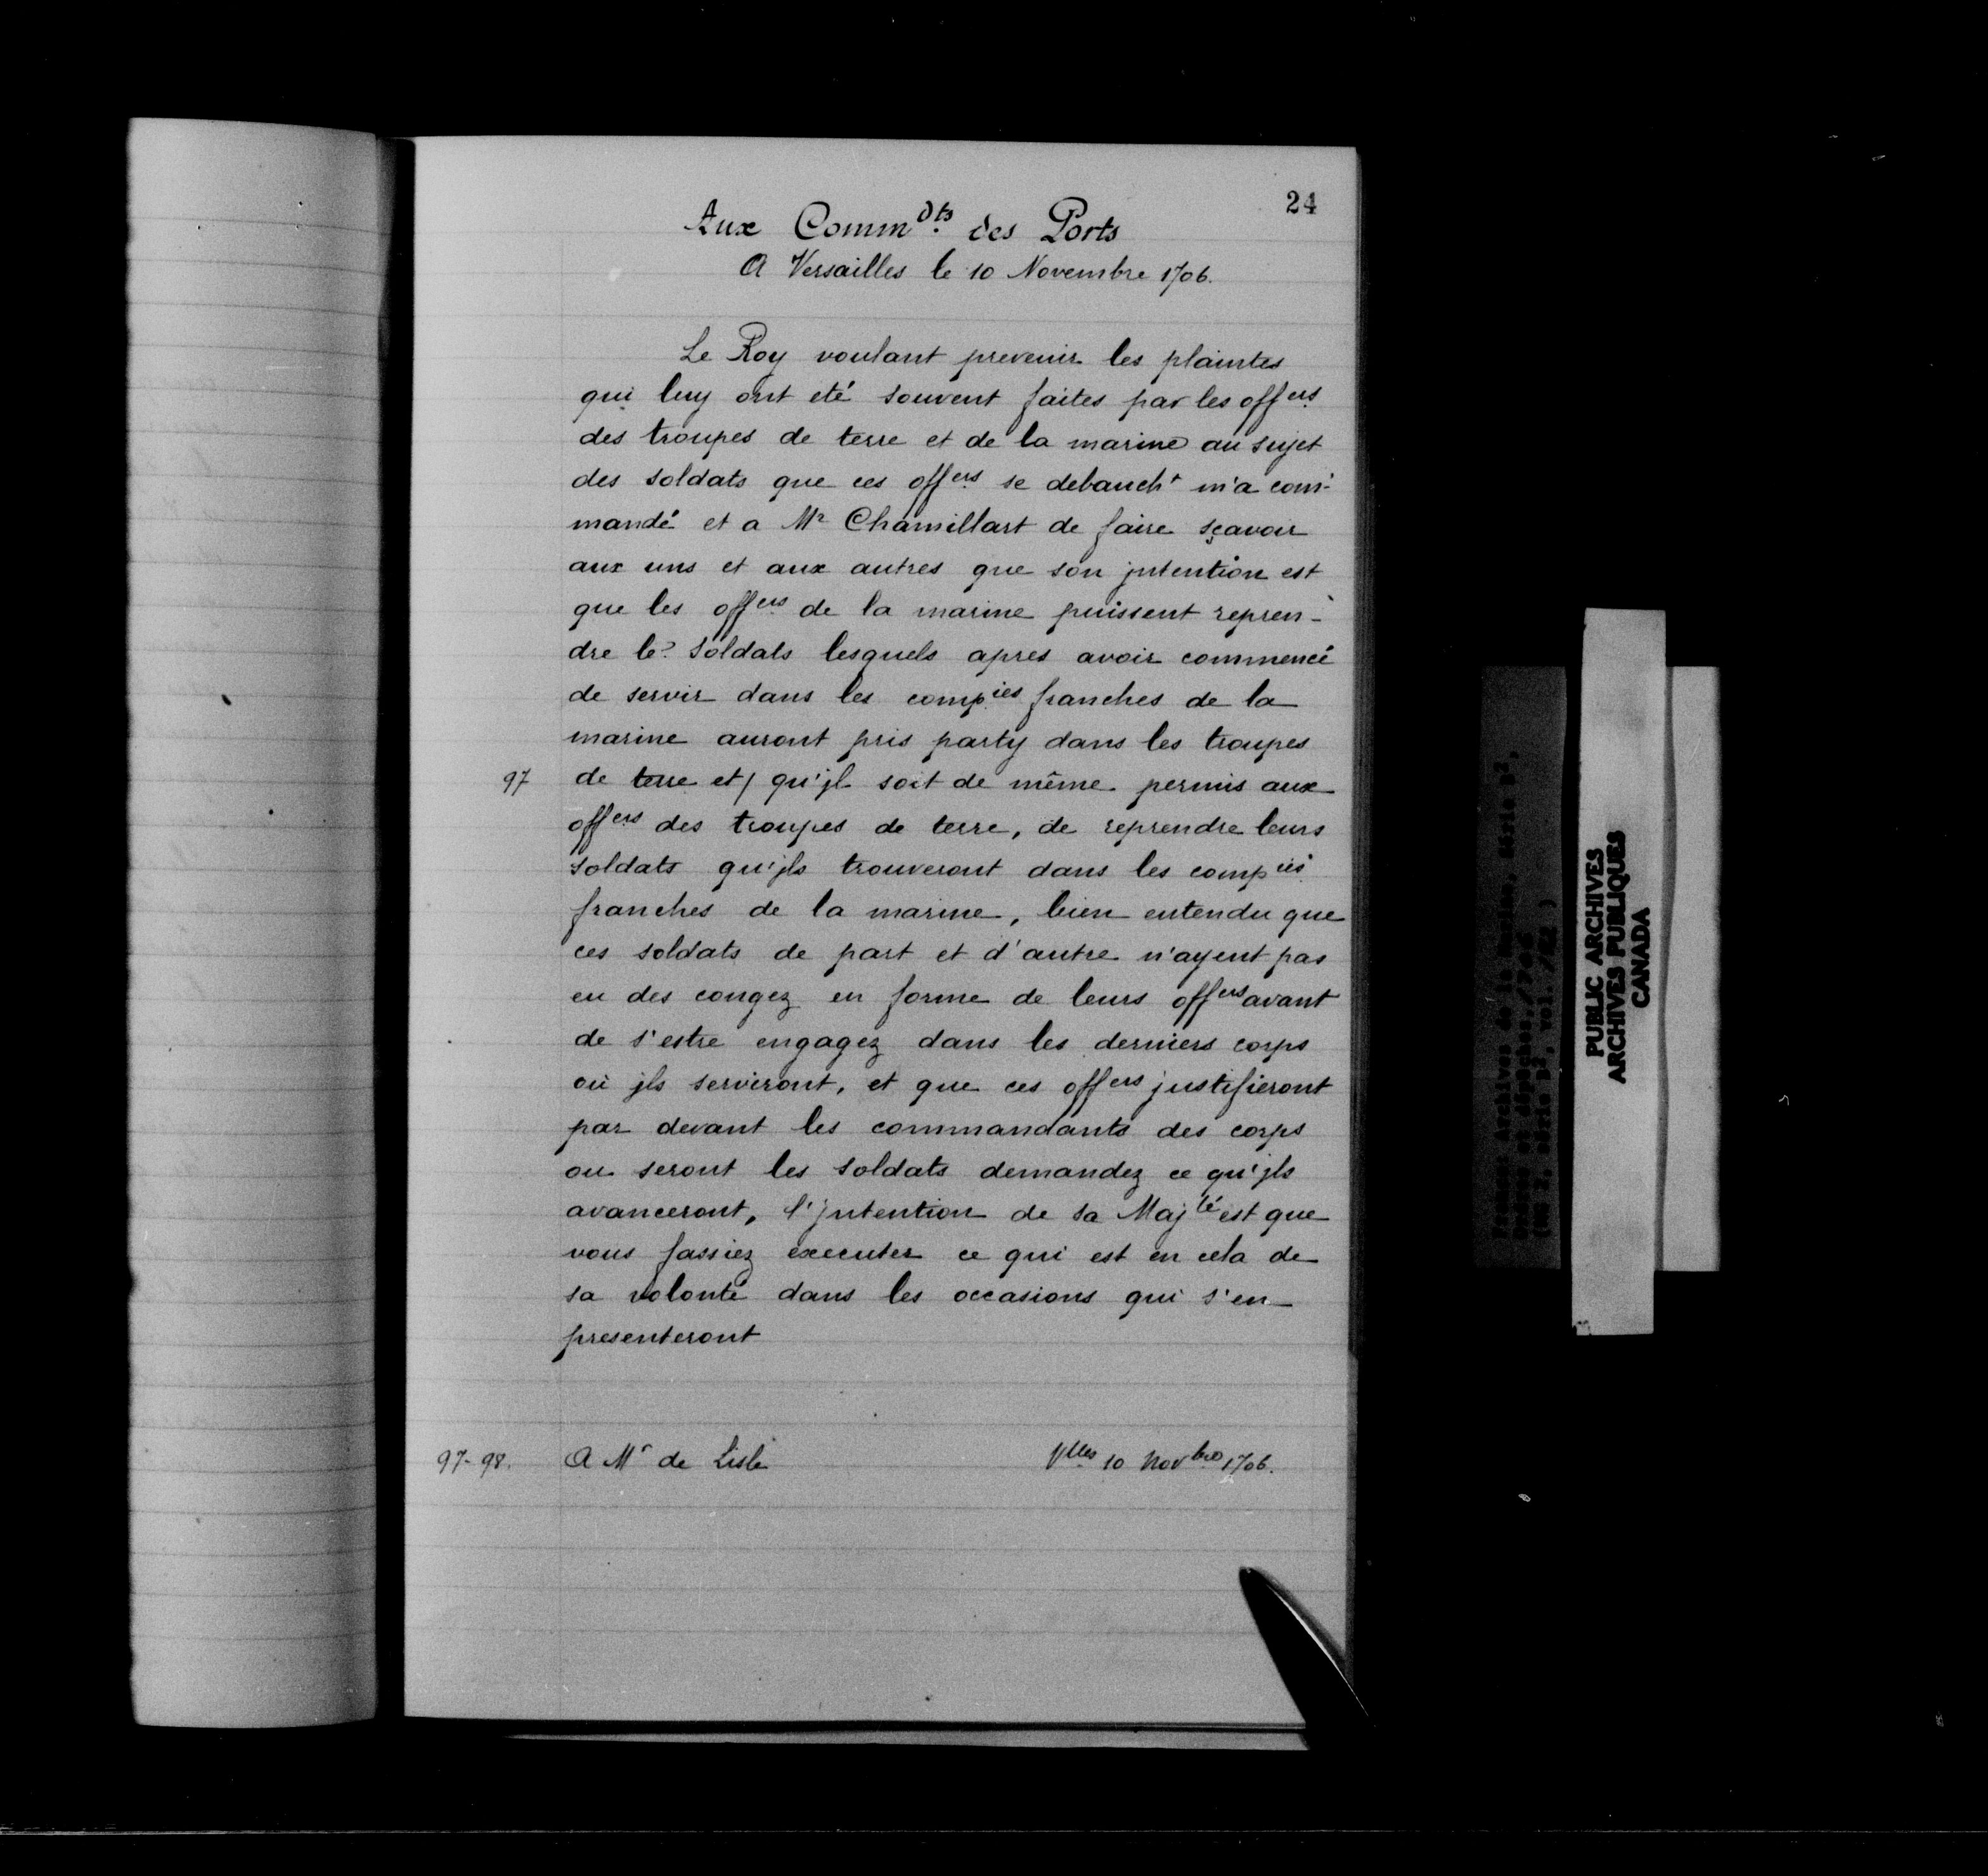 24
Aux Comm.dts des Ports
A Versailles le 10 Novembre 1706.
Le Roy voulant prevenir les plaintes
qui luy ont eté souvent faites par les off.ers
des troupes de terre et de la marine au sujet
des soldats que ces off.ers se debaucht m'a com-
mandé et a Mr Chamillart de faire sçavoir
aux uns et aux autres que son jntention est
que les off.ers de la marine puissent repren-
dre les soldats lesquels apres avoir commencé
de servir dans les comp.ies franches de la
marine auront pris party dans les troupes
97 de terre et/ qu'jl soit de même permis aux
off.ers des troupes de terre, de reprendre leurs
soldats qu'jls trouveront dans les comp.ies
franches de la marine, bien entendu que
ces soldats de part et d'autre n'ayent pas
eu des congez en forme de leurs off.ers avant
de s'estre engagez dans les derniers corps
où jls serviront, et que ces off.ers justifieront
par devant les commandants des corps
ou seront les soldats demandez ce qu'jls
avanceront, l'jntention de sa Maj.té est que
vous fassiez executer ce qui est en cela de
sa volonté dans les occasions qui s'en
presenteront
97-98. A Mr de Lisle Vlles 10 Novbre 1706.
PUBLIC ARCHIVES
ARCHIVES PUBLIQUES
CANADA